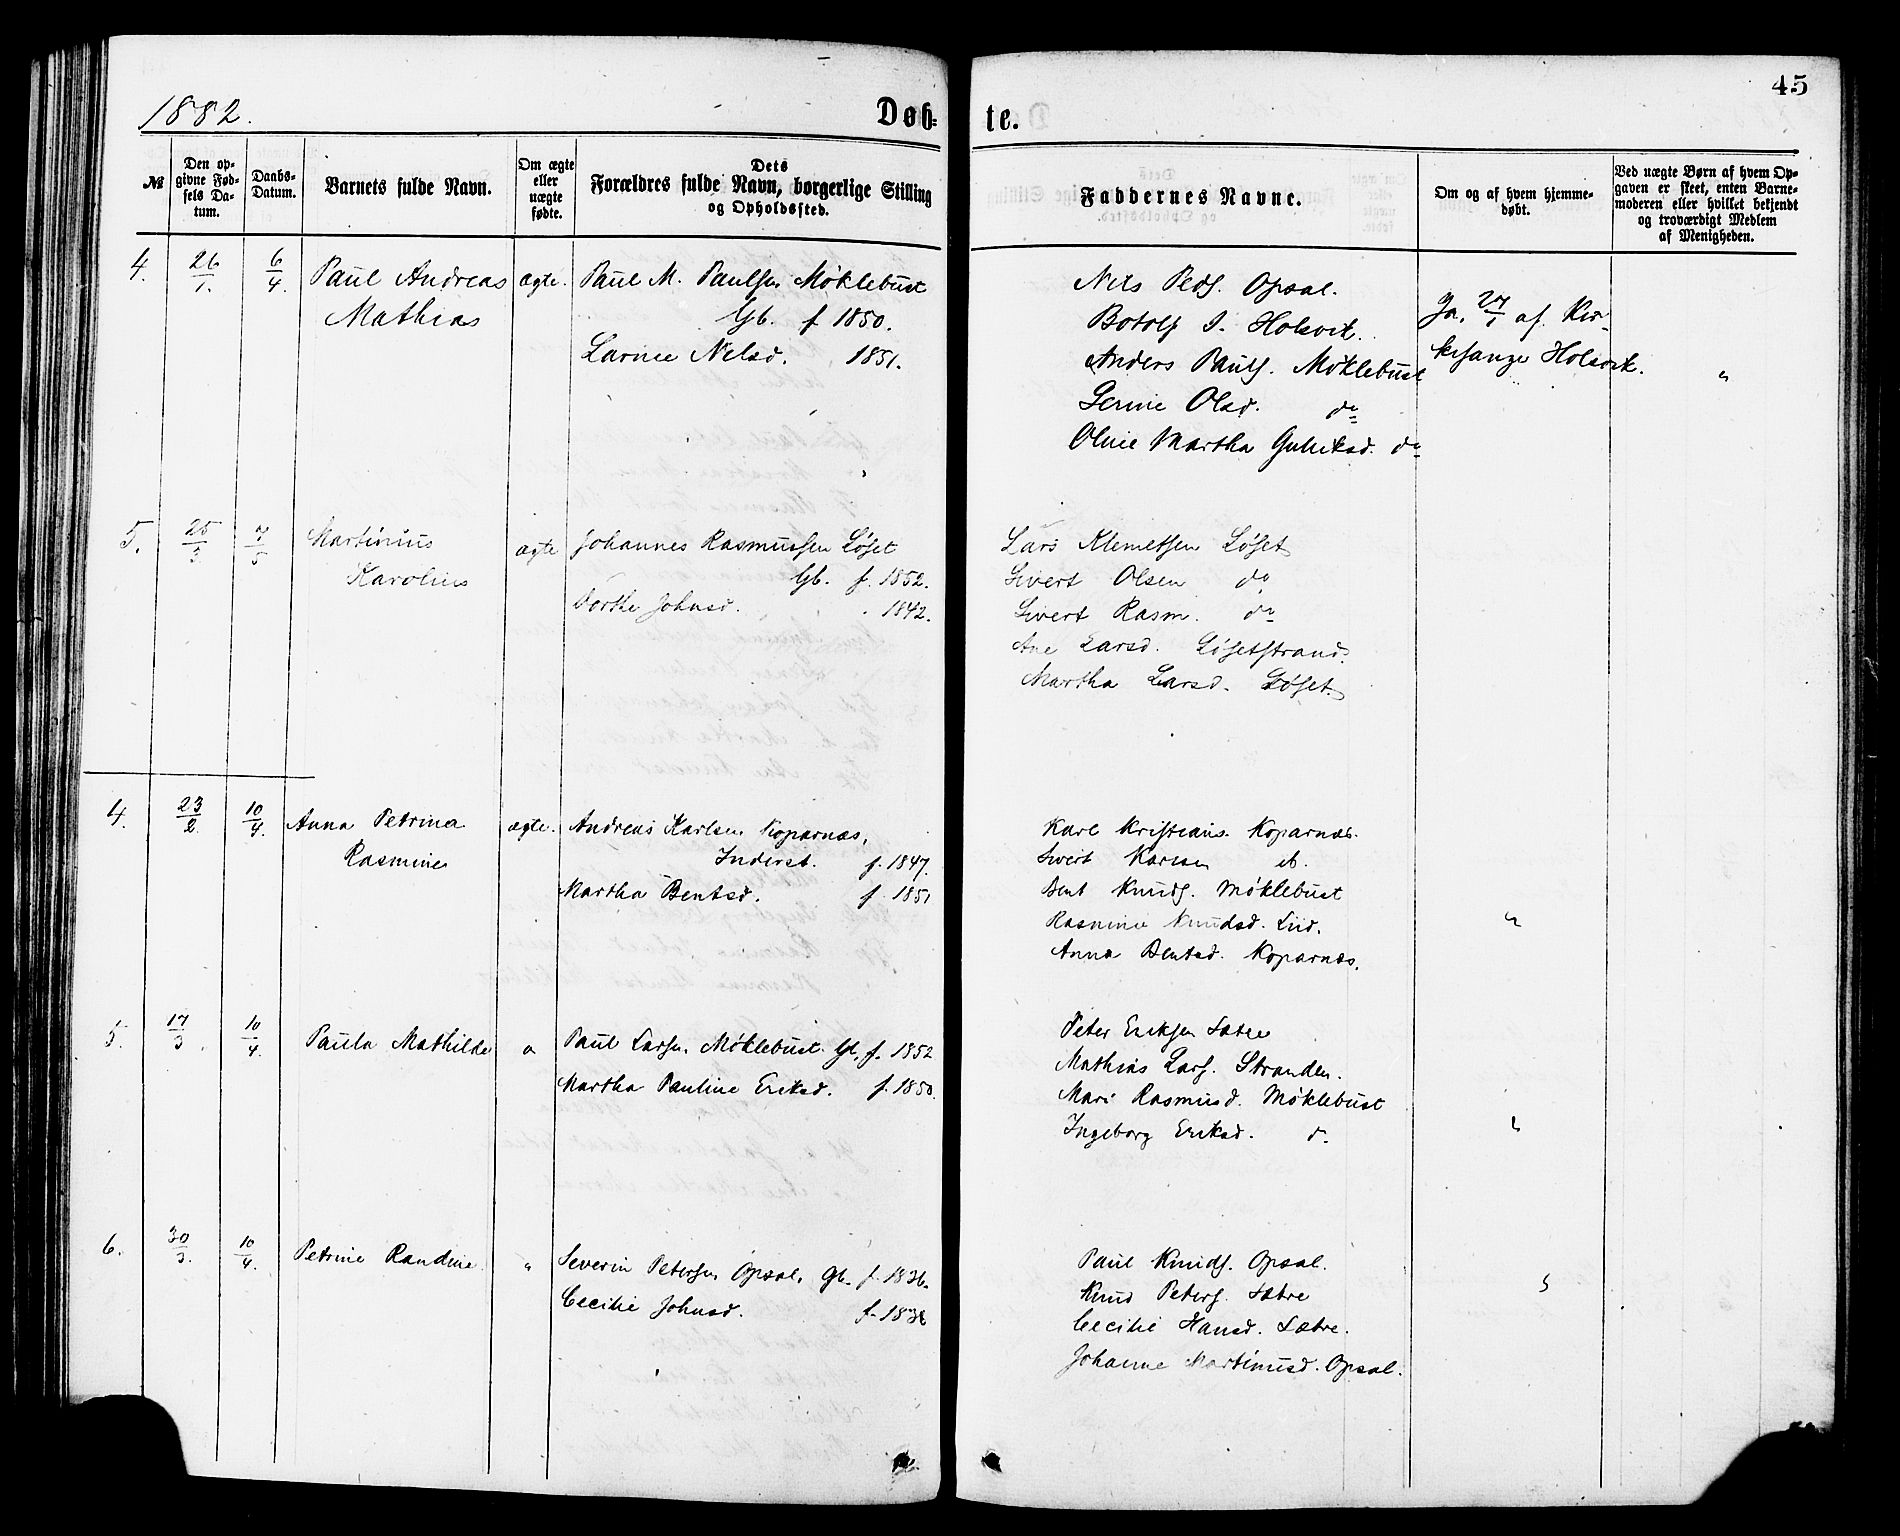 45
1882.
Døb-
te.
№
Den op-
givne Fød-
sels Da-
tum.
Daabs-
Datum.
Barnets fulde Navn.
Om ægte
eller
uægte
fødte.
Dets
Forældres fulde Navn, borgerlige Stilling
og Opholdssted.
Faddernes Navne.
Om og af hvem hjemme-
døbt.
Ved uægte Børn af hvem Op-
gaven er skeet, enten Barne-
moderen eller hvilket bekjendt
og troværdigt Medlem
af Menigheden.
4.
26/1.
6/4.
Paul Andreas
Mathias
ægte.
Paul M. Paulsen Møklebust
Gb. f 1850.
Larine Nilsd. 1851.
Nils Peds. Opsal.
Botolf S. Holsvik.
Anders Pauls. Møklebust
Serine Olsd. do
Oline Martha Gulliksd. do
Ja, 27/1 af Kir-
kesanger Holsvik.
"
5.
25/3
7/5
Martinius
Karolius
ægte
Johannes Rasmussen Løset
Gb. f. 1852.
Dorthe Johnsd. 1842.
Lars Klemetsen Løset
Sivert Olsen do
Sivert Rasm. do
Ane Larsd. Løsetstrand.
Martha Larsd. Løset.
4.
23/2.
10/4.
Anna Petrina
Rasmine
ægte.
Andreas Karlsen Koparnæs,
Inderst. f. 1847.
Martha Bentsd. f. 1851
Karl Kristians. Koparnæs.
Sivert Karlsen ib.
Bent Knuds. Møklebust
Rasmine Knudsd. Liid.
Anna Bentsd. Koparnæs.
"
5.
17/3.
10/4.
Paula Mathilde
"
Paul Larsen Møklebust. Gb, f. 1852
Martha Pauline Eriksd. f. 1850.
Peter Eriksen Sætre
Mathias Lars. Stranden.
Mari Rasmusd. Møklebust
Ingeborg Eriksd. d.
"
6.
30/3.
10/4.
Petrine Randine
"
Severin Petersen Opsal, Gb. f. 1836.
Cecilie Johnsd. f. 1838
Paul Knuds. Opsal.
Knud Peters. Sætre
Cecilie Hansd. Sætre.
Johanne Martinusd. Opsal.
"